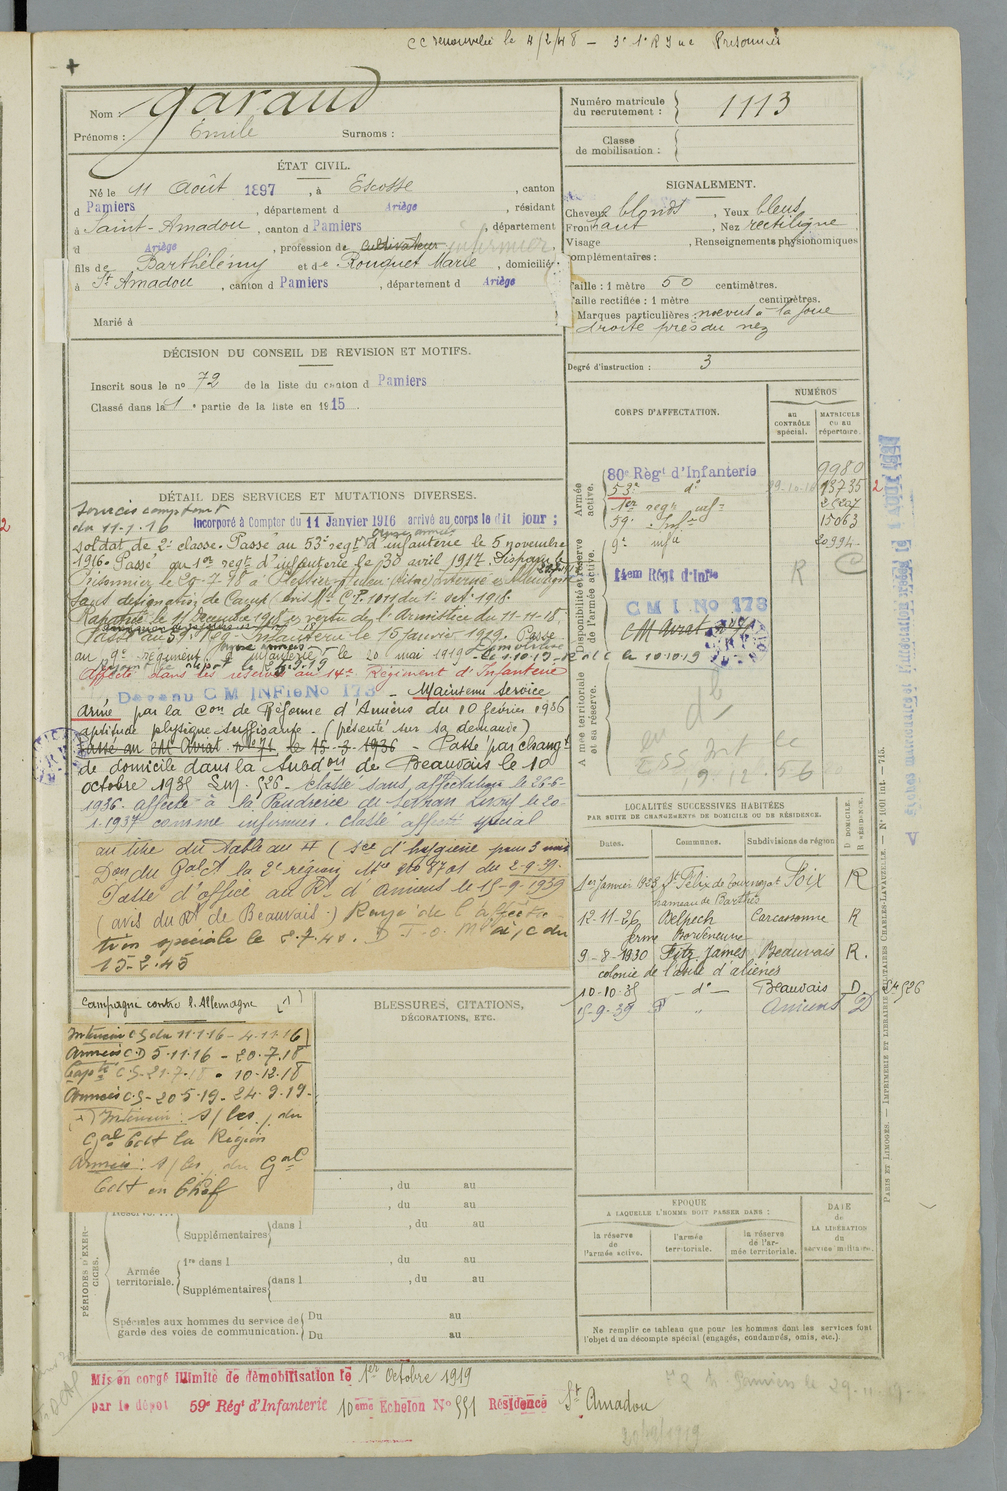 CC renouvelée le 4/2/48 - 3e 1e R I ne Prisonnier
Nom : Garaud
Prénoms : Émile Surnoms :
ÉTAT CIVIL.
Né le 11 Août 1897, à Escosse, canton
d Pamiers, département d Ariège, résidant
à Saint-Amadou, canton d Pamiers, département
d Ariège, profession de cultivateur infirmier,
fils de Barthélémy et de Rouquet Marie, domiciliés
à St Amadou, canton d Pamiers, département d Ariège
Marié à
DÉCISION DU CONSEIL DE REVISION ET MOTIFS.
Inscrit sous le no 72 de la liste du canton d Pamiers
Classé dans la 1e partie de la liste en 1915.
DÉTAIL DES SERVICES ET MUTATIONS DIVERSES.
Services comptant
du 11-1-16 Incorporé à Compter du 11 Janvier 1916 arrivé au corps le dit jour ;
soldat de 2e classe. Passé au 53e regt d'infanterie le 5 novembre
1916. Passé au 1er regt d'infanterie le 30 avril 1917. Disparu le
Prisonnier le 20-7-18 à Plessier-Huleu (Aisne) Interné en Allemagne
sans désignation de Camp (avis Mel C.P. 1011 du 1er oct 1918.
Rapatrié le 11 Décembre 1918 en vertu de l'Armistice du 11-11-18.
Passé au 59e Reg. Infanterie le 15 Janvier 1919. Passé
au 9e régiment infanterie le 20 mai 1919
Affecté dans les réserves au 14e Régiment d'Infanterie
Devenu C M INFie No 173 - Maintenu Service
Armé par la Con de Réforme d'Amiens du 10 février 1936
aptitude physique suffisante - (présenté sur sa demande)
Passé au CM Aurat. no 71 le 15-3-1936 - Passé par changt
de domicile dans la Subdon de Beauvais le 10
octobre 1935 Lm. 526 - classé sans affectation le 26-6-
1936. affecté à la Poudrerie de Sevran Livry le 20-
1-1937 comme infirmier. Classé affecté spécial
au titre du Tableau 4 (Sce d'hygiène pour 3 mois
Don du Gal Ct la 2e région Nte No 8701 du 2-9-39.
Passé d'office au Rt d'Amiens le 15-9-1939
(avis du Rt de Beauvais.) Rayé de l'affecta-
tion spéciale le 2.7.40.
15-2-45
Campagne contre l'Allemagne
Intérieur C.S du 11-1-16 - 4-11-16
Armées C.D 5-11-16 - 20-7-18
Capté C.S - 21-7-18 - 10-12-18
Armées C.S - 20 5-19 - 24-9-19
Intérieur : s/ les / du
Gal Cdt la Région
Armées : s/ les du Gal
Cdt en Chef
BLESSURES, CITATIONS,
DÉCORATIONS, ETC.
PÉRIODES D'EXERCICES.
, du au
, du au
Supplémentaires dans l , du au
Armée territoriale.
1re dans l , du au
Supplémentaires dans l , du au
Spéciales aux hommes du service de garde des voies de communication.
Du au
Du au
Mis en congé illimité de démobilisation le 1er Octobre 1919
par le dépôt 59e Régt d'Infanterie 10ème Echelon No 551 Résidence St Amadou
Numéro matricule du recrutement : 1113
Classe de mobilisation :
SIGNALEMENT.
Cheveux blonds, Yeux bleus
Front haut, Nez rectiligne.
Visage , Renseignements physionomiques
complémentaires :
Taille : 1 mètre 50 centimètres.
Taille rectifiée : 1 mètre centimètres.
Marques particulières : nœvus à la joue
droite près du nez
Degré d'instruction : 3
CORPS D'AFFECTATION.
NUMÉROS
au CONTRÔLE spécial.
MATRICULE ou au répertoire.
Armée active.
80e Régt d'Infanterie 9980
53e do 13735
1er regt infie
59e Infie 15063
9e infie 20994
Disponibilité et réserve de l'armée active.
14em Régt d'Infie R
C M I No 173
CM Aurat no 71
Armée territoriale et sa réserve.
LOCALITÉS SUCCESSIVES HABITÉES
PAR SUITE DE CHANGEMENTS DE DOMICILE OU DE RÉSIDENCE.
Dates. Communes. Subdivisions de région D. DOMICILE. R. RÉSIDENCE.
St Félix de Tournegat Foix R
hameau de Barthès
12-11-26 Belpech Carcassonne R
ferme Bordeneuve
9-8-1930 Fitz James Beauvais R.
colonie de l'asile d'aliénés
10-10-35 - do - Beauvais D. Lm 526
15-9-39 Amiens D
ÉPOQUE
A LAQUELLE L'HOMME DOIT PASSER DANS :
la réserve de l'armée active.
l'armée territoriale.
la réserve de l'armée territoriale.
DATE de LA LIBÉRATION du service militaire.
Ne remplir ce tableau que pour les hommes dont les services font
l'objet d'un décompte spécial (engagés, condamnés, omis, etc.).
PARIS ET LIMOGES. — IMPRIMERIE ET LIBRAIRIE MILITAIRES CHARLES-LAVAUZELLE. — No 1001 int. — 715.